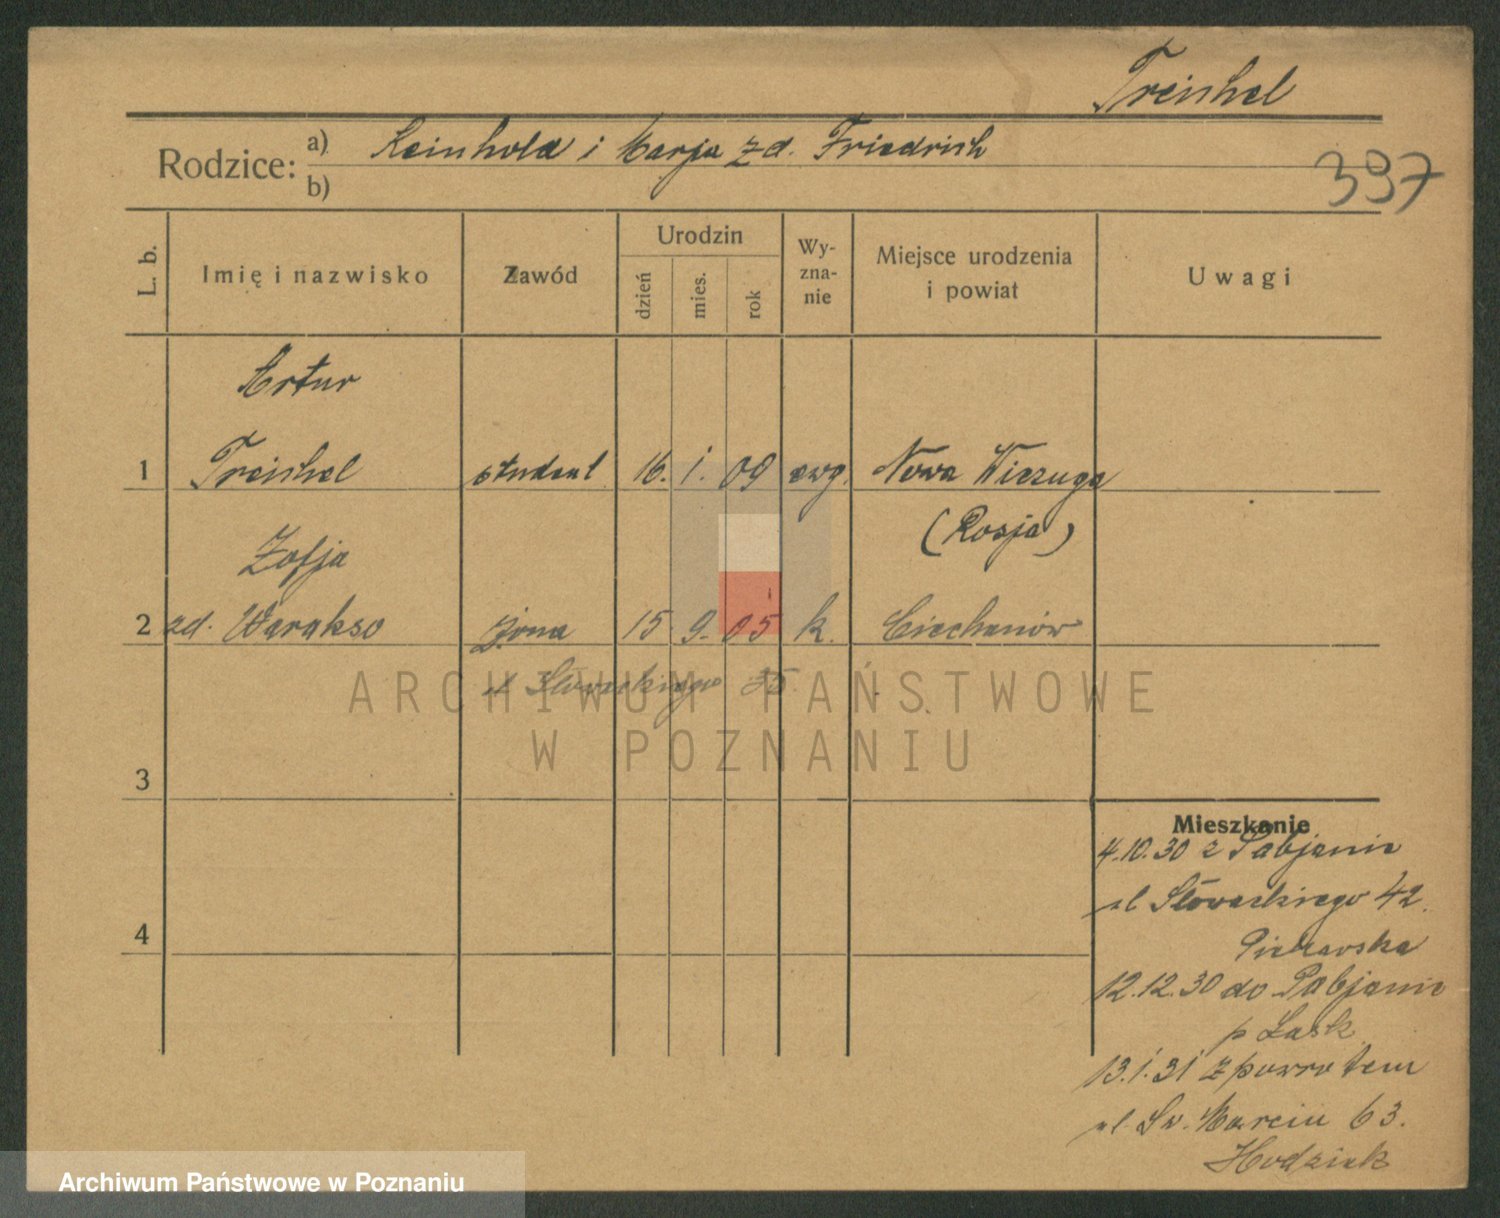 Treichel
Rodzice: a) Reinhold i Marja zd. Friedrich
b)
397
L. b. Imię i nazwisko Zawód Urodzin dzień mies. rok Wy-zna-nie Miejsce urodzenia i powiat Uwagi
Artur
1 Treichel student 16. 1. 09 ewg. Nowa Wiczuga
(Rosja)
Zofja
2 zd. Warakso żona 15. 9. 05 k. Ciechanów
ul Słowackiego 35
ARCHIWUM PAŃSTWOWE
W POZNANIU
3
Mieszkanie
4.10.30 z Pabjanic
ul Słowackiego 42.
4
Piekarska
12.12.30 do Pabjanic
p Łask
13.1.31 z powrotem
ul. Św. Marcin 63.
Archiwum Państwowe w Poznaniu